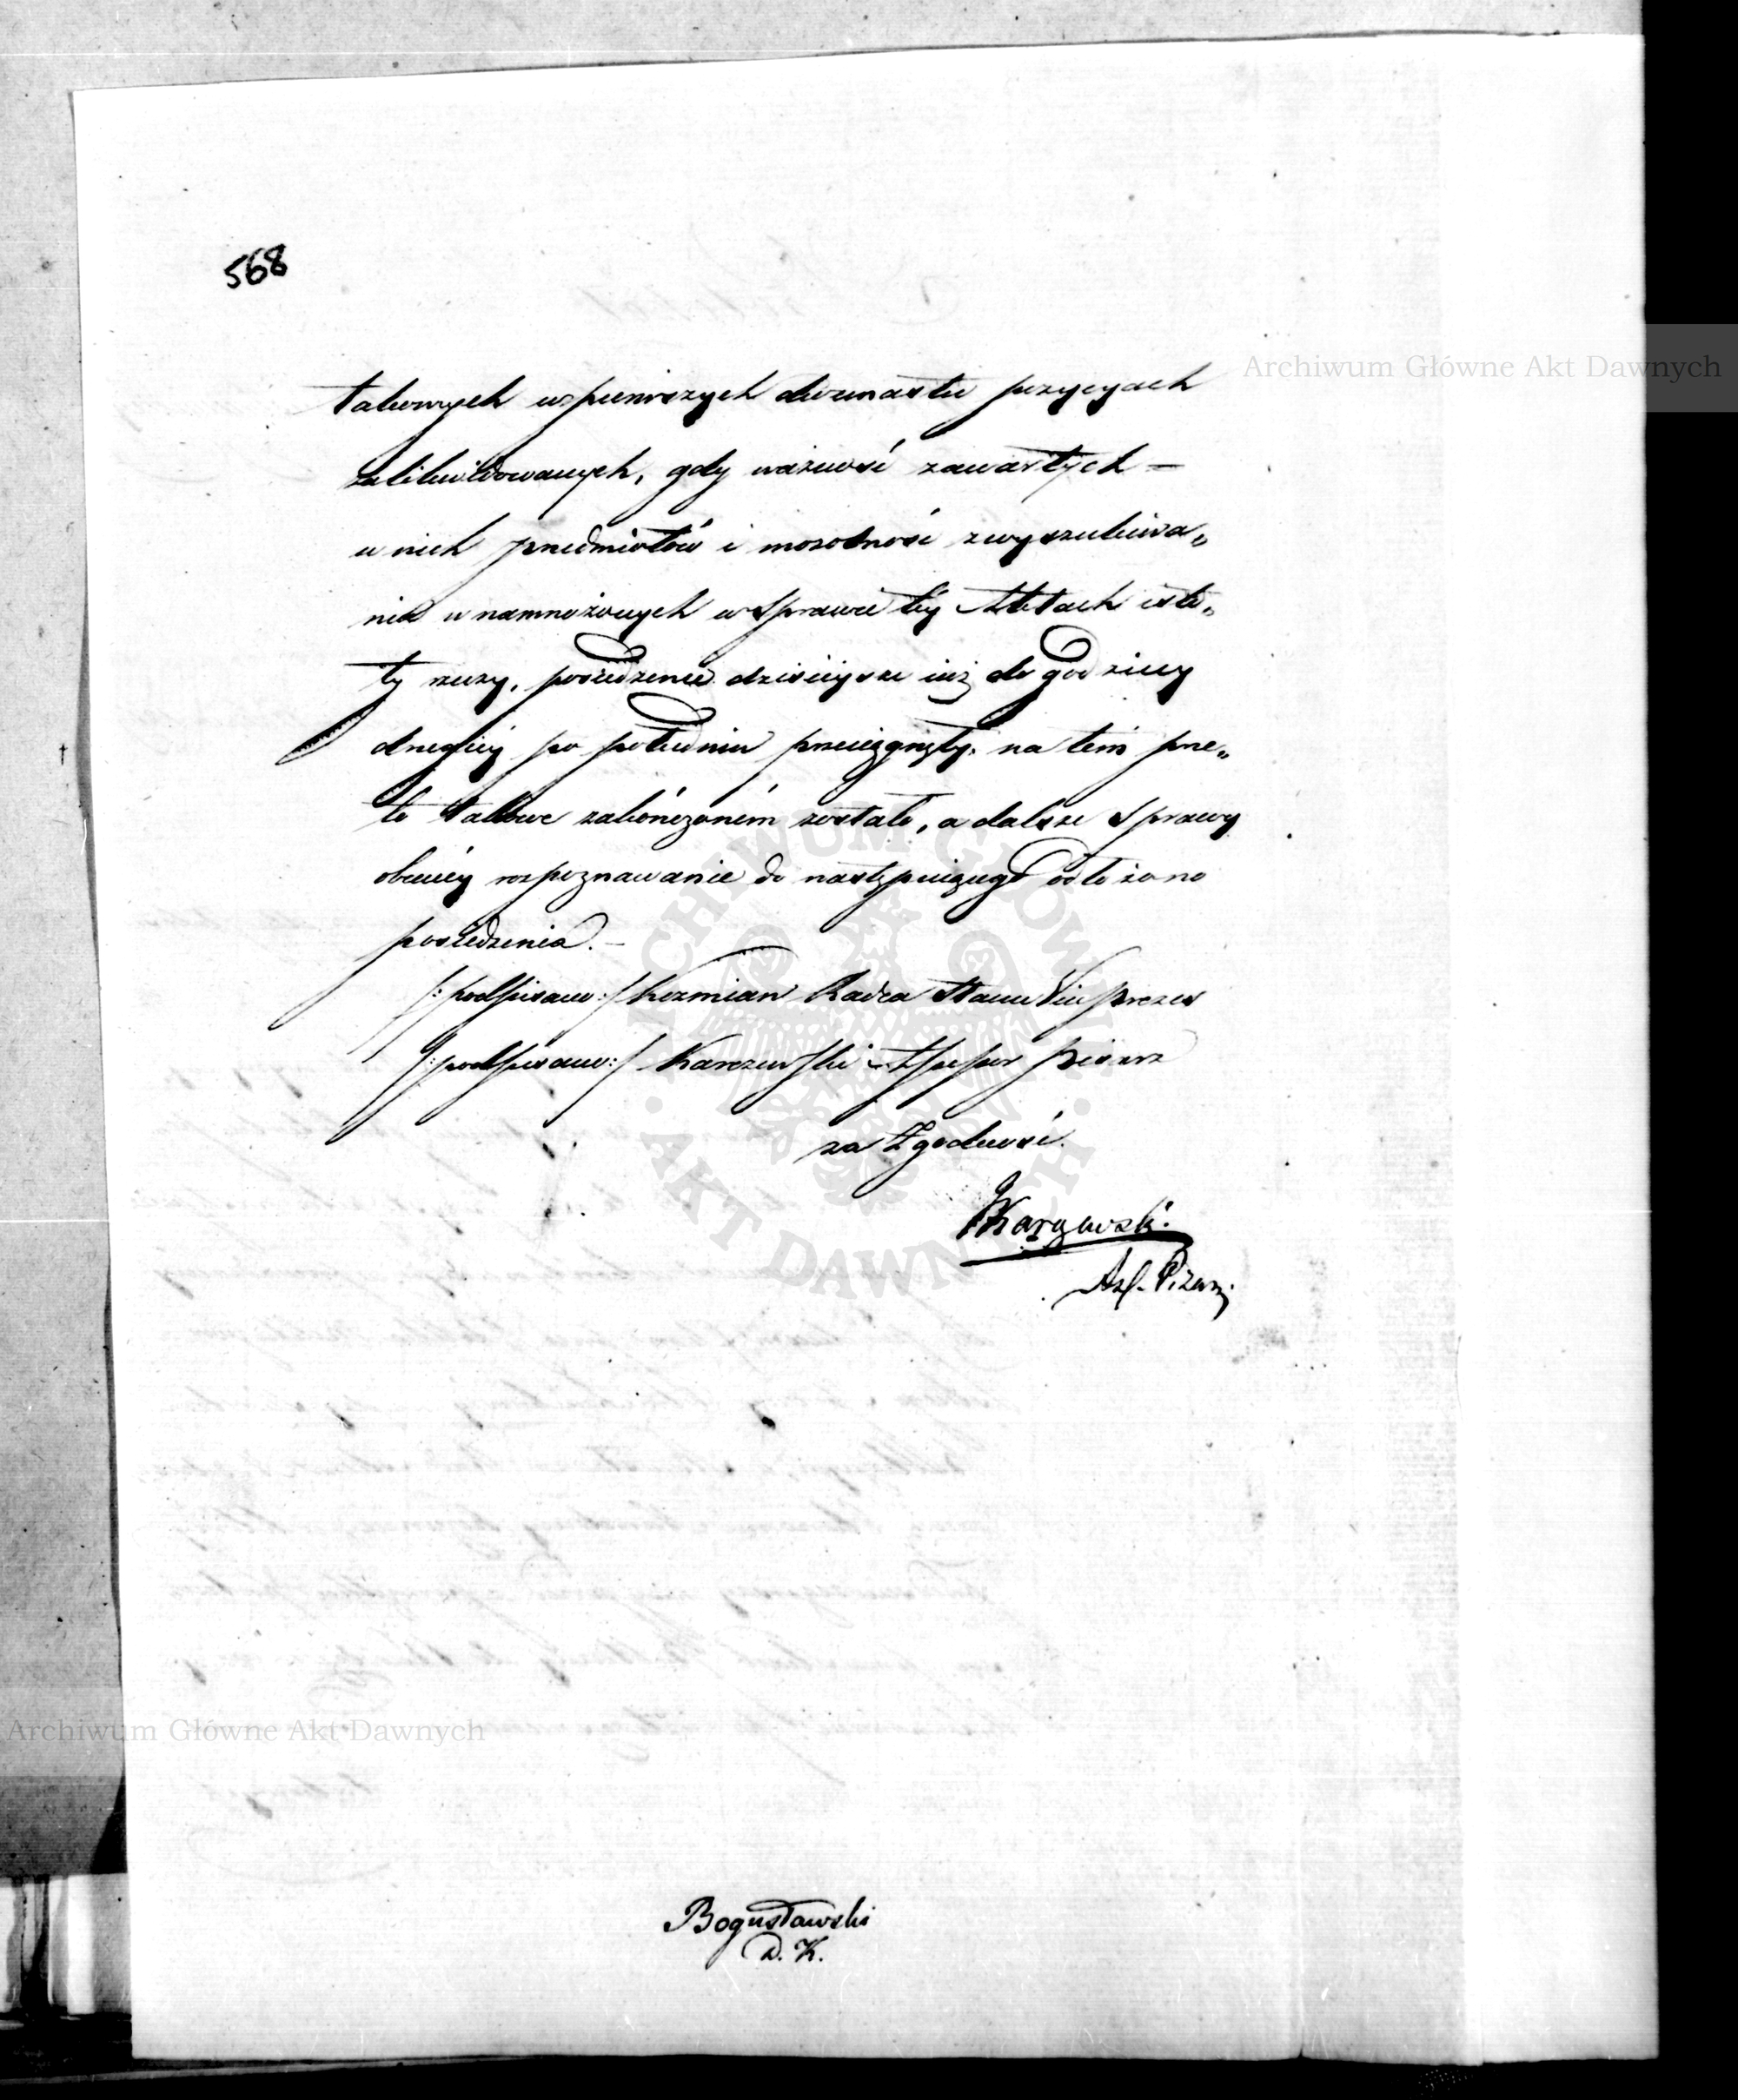 568
Archiwum Główne Akt Dawnych
takowych w pierwszych dwunastu pozycyach
zalikwidowanych, gdy ważność zawartych —
w nich przedmiotów i mozolność z wyszukiwa„
nia w namnożonych w Sprawie tey Aktach isto„
ty rzeczy, posiedzenie dzisieysze iuż do godziny
drugiey po południu przeciągnęły, na tém prze„
to takowe zakończoném zostało, a dalsze Sprawy
obecnéy rozpoznawanie do następuiącego odłożono
posiedzenia. —
/: podpisano :/ Kozmian Radca Stanu Prezes
/: podpisano :/ Karczewski Assessor Pisarz
za Zgodność.
Karczewski.
Ass. Pisarz.
Archiwum Główne Akt Dawnych
Bogusławski
D. K.
ARCHIWUM GŁÓWNE · AKT DAWNYCH ·